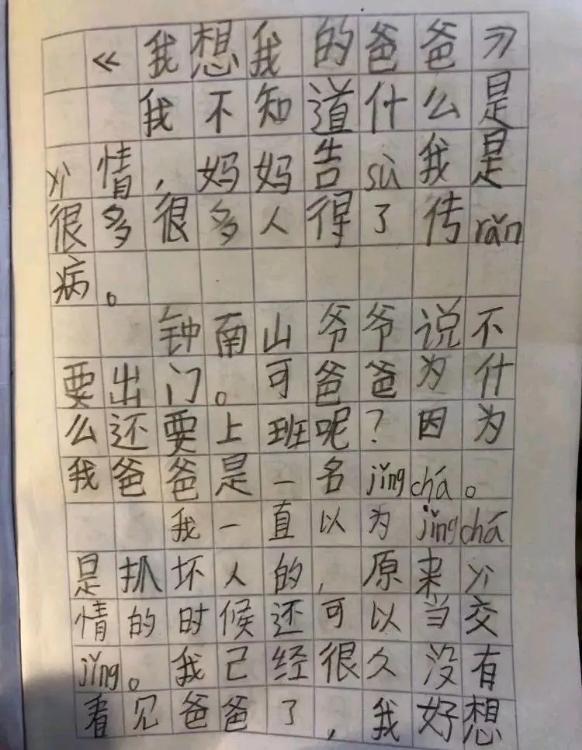 《我想我的爸爸》
我不知道什么是
yì情,妈妈告sù我是
很多很多人得了传rǎn
病。
钟南山爷爷说不
要出门。可爸爸为什
么还要上班呢?因为
我爸爸是一名jǐngchá。
我一直以为jǐngchá
是抓坏人的,原来yì
情的时候还可以当交
jǐng。我已经很久没有
看见爸爸了,我好想